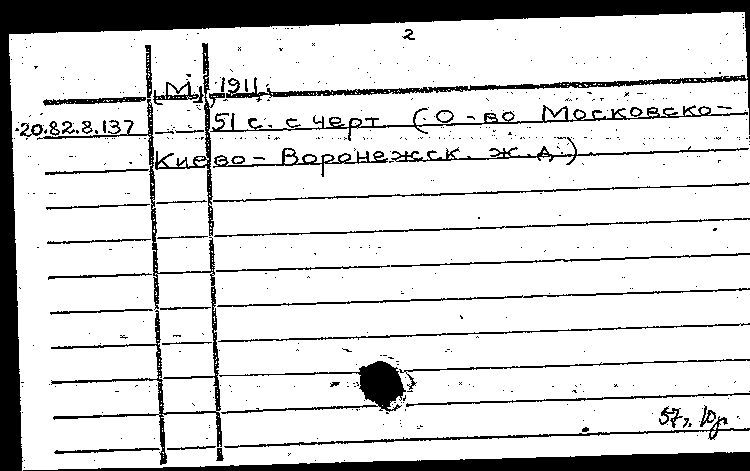 2
[М], 1911.
20.82.8.137 51 с. с черт (О-во Московско-
Киево-Воронежск. ж.д.)